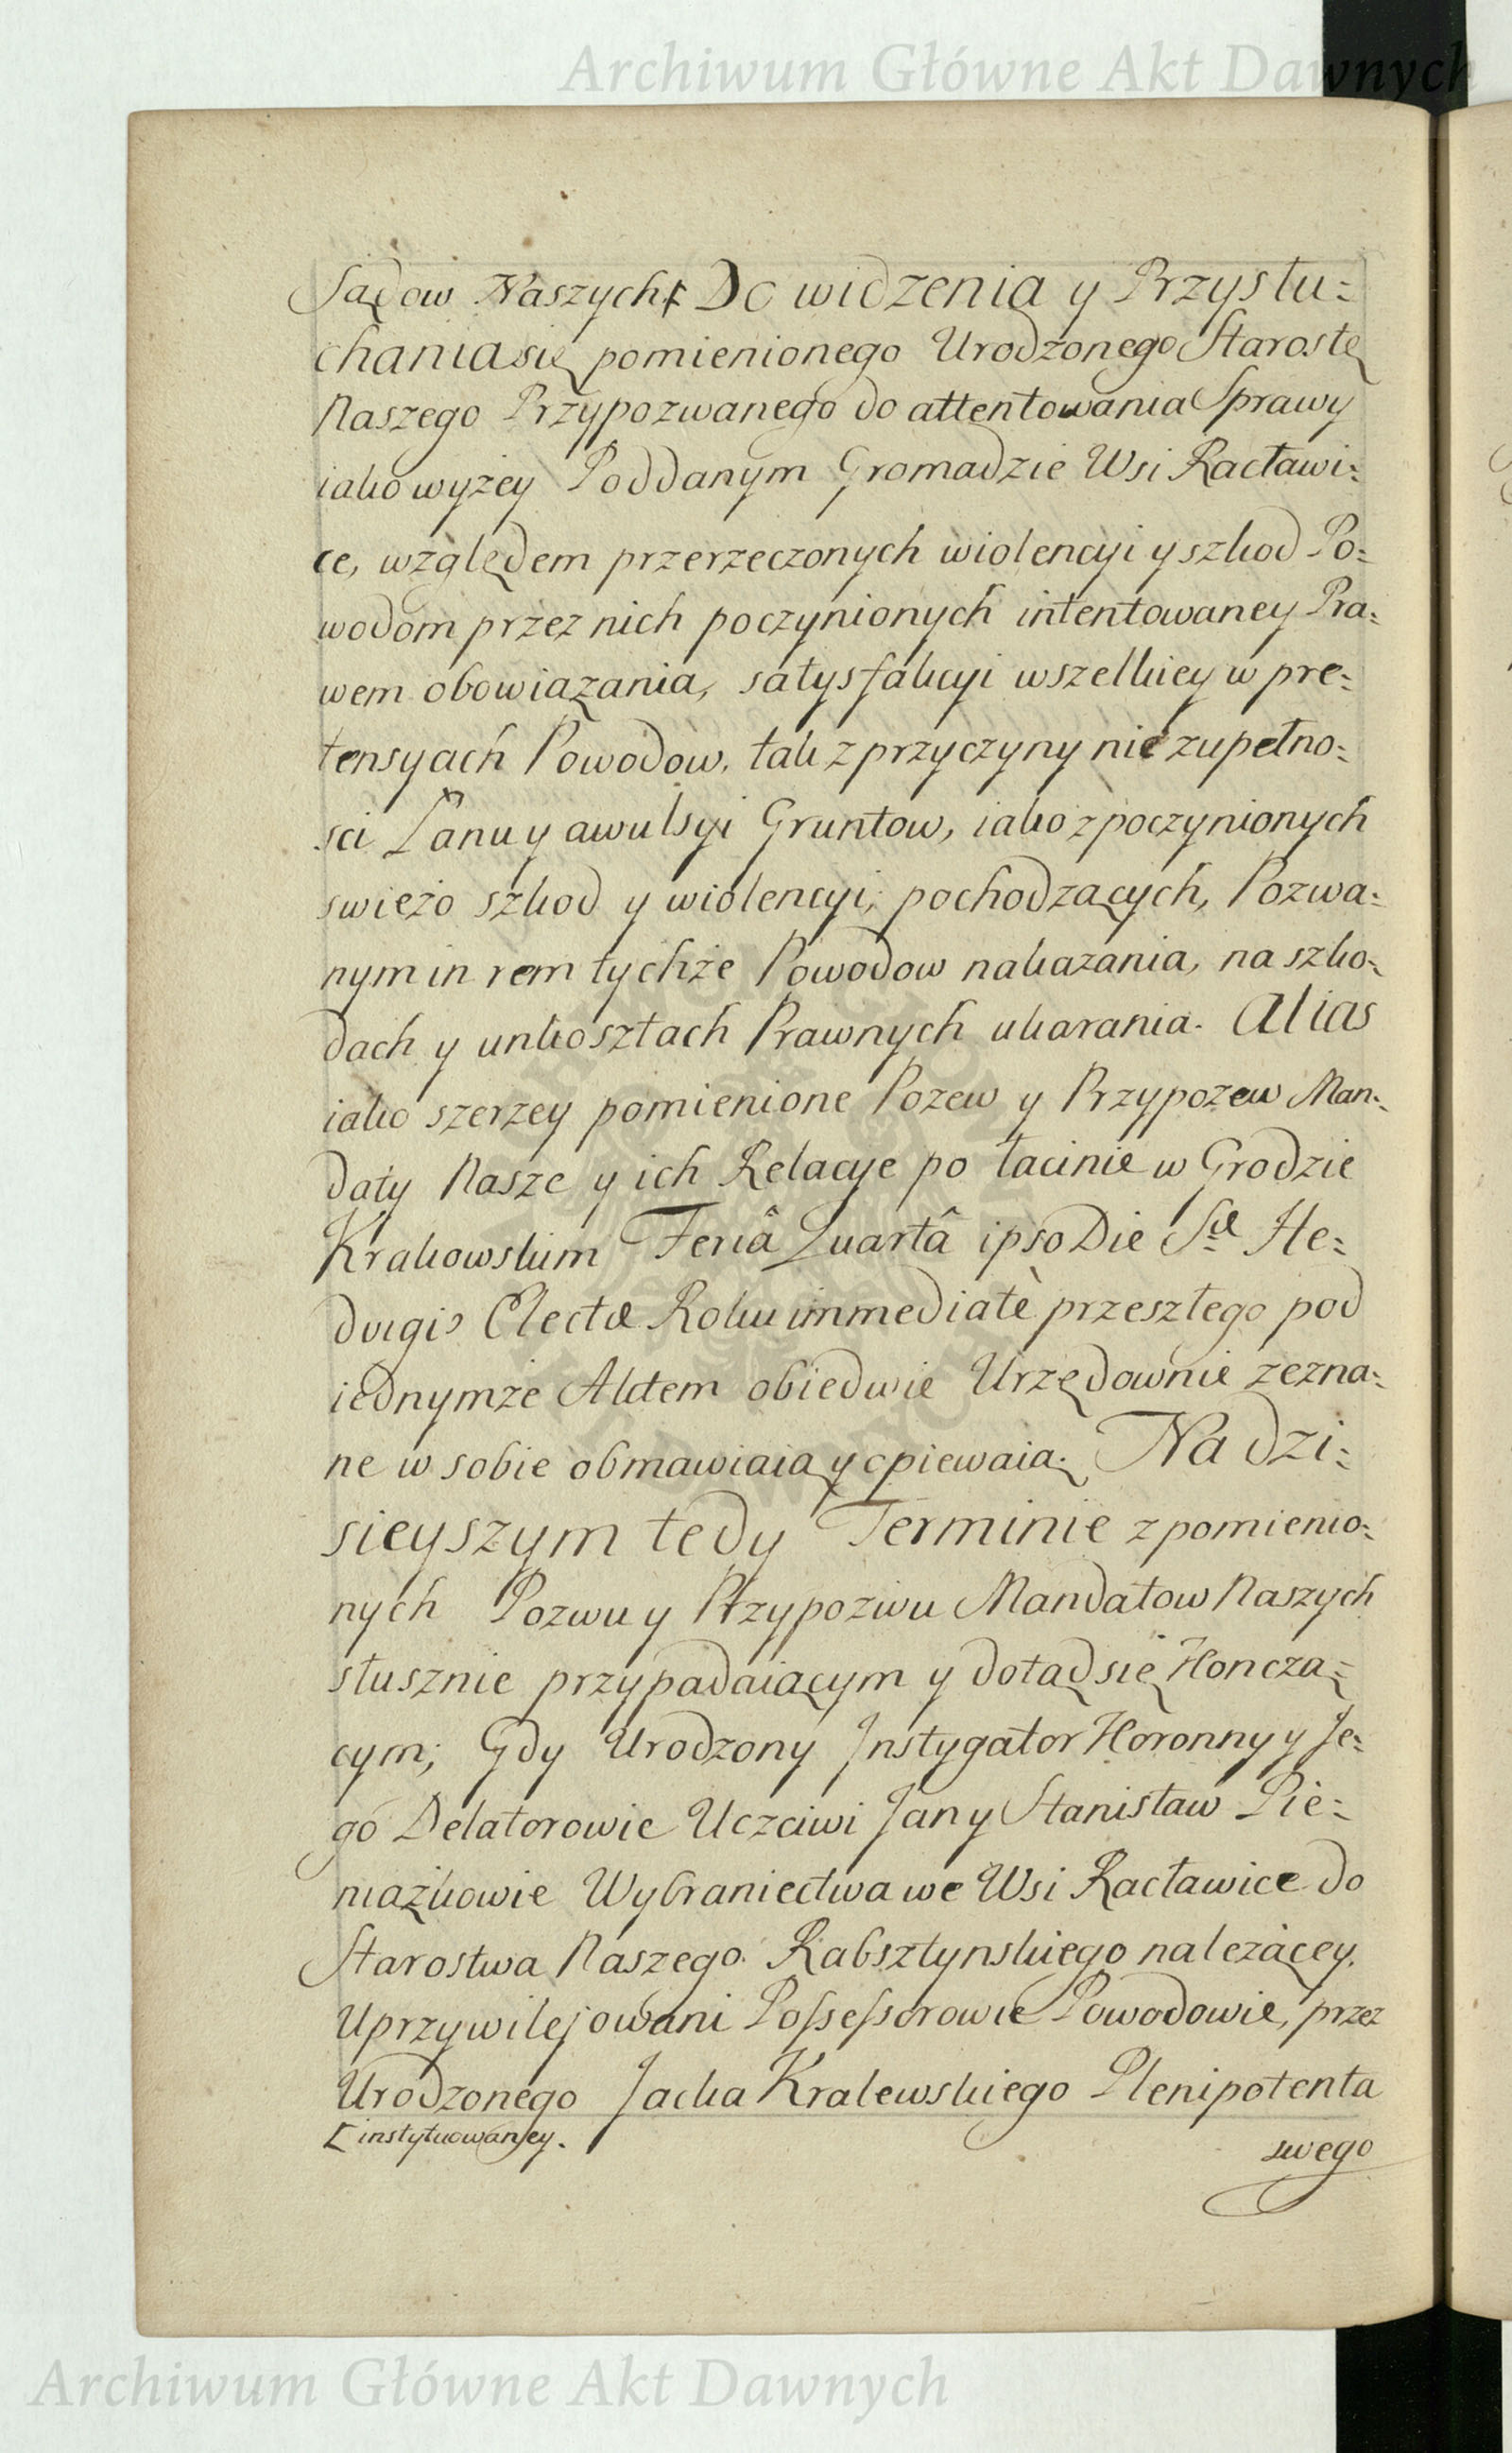 Archiwum Główne Akt Dawnych
Sądow Naszych ꝉ Do widzenia y Przysłu=
chania się pomienionego Urodzonego Starostę
Naszego Przypozwanego do attentowania Sprawy
iako wyżey Poddanym Gromadzie Wsi Racławi=
ce, względem przerzeczonych wiolencyi y szkod Po=
wodom przez nich poczynionych intentowaney Pra=
wem obowiązania, satysfakcyi wszelkiey w pre=
tensyach Powodow, tak z przyczyny nie zupełno=
sci Łanu y awulsyi Gruntow, iako z poczynionych
swieżo szkod y wiolencyi, pochodzących, Pozwa=
nym in rem tychże Powodow nakazania, na szko=
dach y unkosztach Prawnych ukarania. Alias
iako szerzey pomienione Pozew y Przypozew Man=
daty Nasze y ich Relacye po łacinie w Grodzie
Krakowskim Feriâ Quartâ ipso Die Sæ He=
dvigis Electæ Roku immediatè przeszłego pod
iednymże Aktem obiedwie Urzędownie zezna=
ne w sobie obmawiaią y opiewaią. Na dzi=
sieyszym tedy Terminie z pomienio=
nych Pozwu y Przypozwu Mandatow Naszych
słusznie przypadaiącym y dotąd się Koncza=
cym; Gdy Urodzony Instygator Koronny y Je=
go Delatorowie Uczciwi Jan y Stanisław Pie=
niążkowie Wybraniectwa we Wsi Racławice do
Starostwa Naszego Rabsztynskiego należącey.
Uprzywilejowani Possessorowie Powodowie, przez
Urodzonego Jacka Kralewskiego Plenipotenta
[ instytuowaney.
swego
Archiwum Główne Akt Dawnych